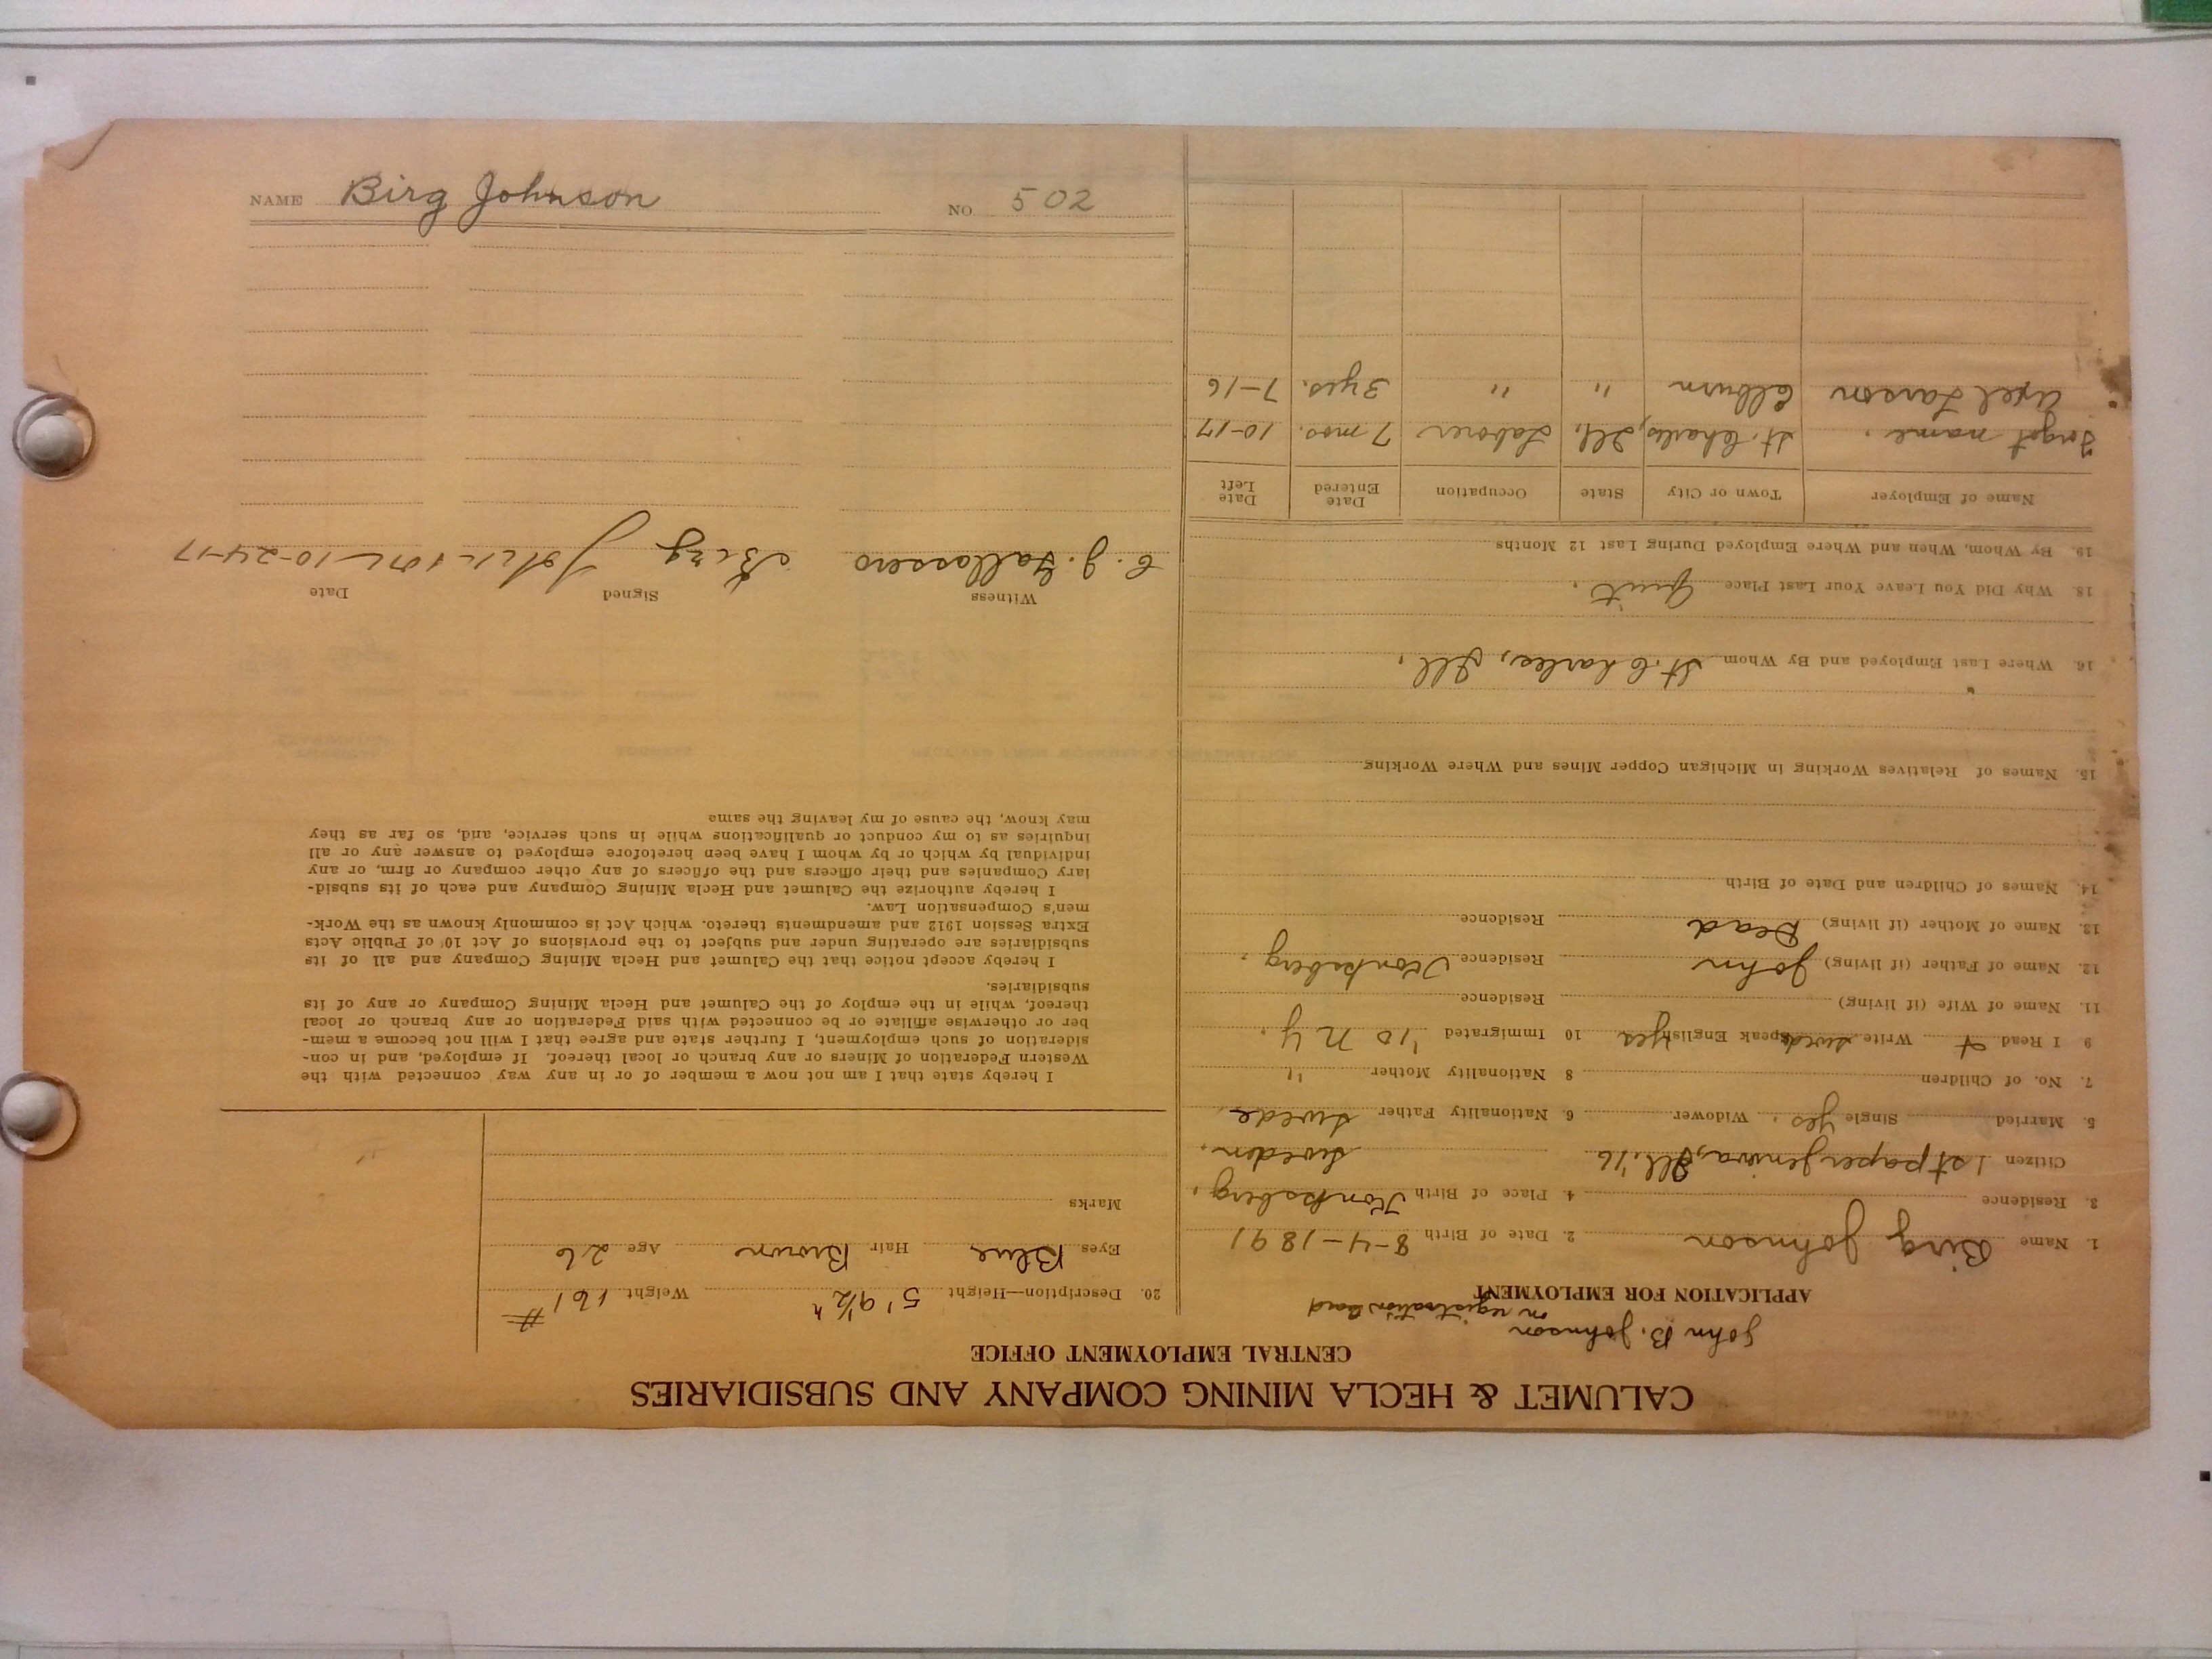 CALUMET & HECLA MINING COMPANY AND SUBSIDIARIES
CENTRAL EMPLOYMENT OFFICE
John B. Johnson
on registration Card
APPLICATION FOR EMPLOYMENT
1. Name Birg Johnson 2. Date of Birth 8-4-1891
3. Residence 4. Place of Birth
Citizen 1st paper Ill. '16 Sweden.
5. Married Single Yes. Widower 6. Nationality Father Swede
7. No. of Children 8 Nationality Mother "
9 I Read & Write Speak English yes 10 Immigrated '10 N Y.
11. Name of Wife (if living) Residence
12. Name of Father (if living) John Residence
13. Name of Mother (if living) Dead Residence
14. Names of Children and Date of Birth
15. Names of Relatives Working in Michigan Copper Mines and Where Working
16. Where Last Employed and By Whom St. Charles, Ill.
18. Why Did You Leave Your Last Place Quit.
19. By Whom, When and Where Employed During Last 12 Months
Name of Employer Town or City State Occupation Date Entered Date Left
Forgot name. St. Charles, Ill. Laborer 7 mos. 10-17
Axel Larson Elburn " " 3 yrs. 7-16
20. Description—Height 5' 9½" Weight 161 #
Eyes Blue Hair Brown Age 26
Marks
I hereby state that I am not now a member of or in any way connected with the
Western Federation of Miners or any branch or local thereof. If employed, and in con-
sideration of such employment, I further state and agree that I will not become a mem-
ber or otherwise affiliate or be connected with said Federation or any branch or local
thereof, while in the employ of the Calumet and Hecla Mining Company or any of its
subsidiaries.
I hereby accept notice that the Calumet and Hecla Mining Company and all of its
subsidiaries are operating under and subject to the provisions of Act 10 of Public Acts
Extra Session 1912 and amendments thereto. which Act is commonly known as the Work-
men's Compensation Law.
I hereby authorize the Calumet and Hecla Mining Company and each of its subsid-
iary Companies and their officers and the officers of any other company or firm, or any
individual by which or by whom I have been heretofore employed to answer any or all
inquiries as to my conduct or qualifications while in such service, and, so far as they
may know, the cause of my leaving the same
Witness Signed Date
Birg Johnson 10-24-17
NAME Birg Johnson NO. 502